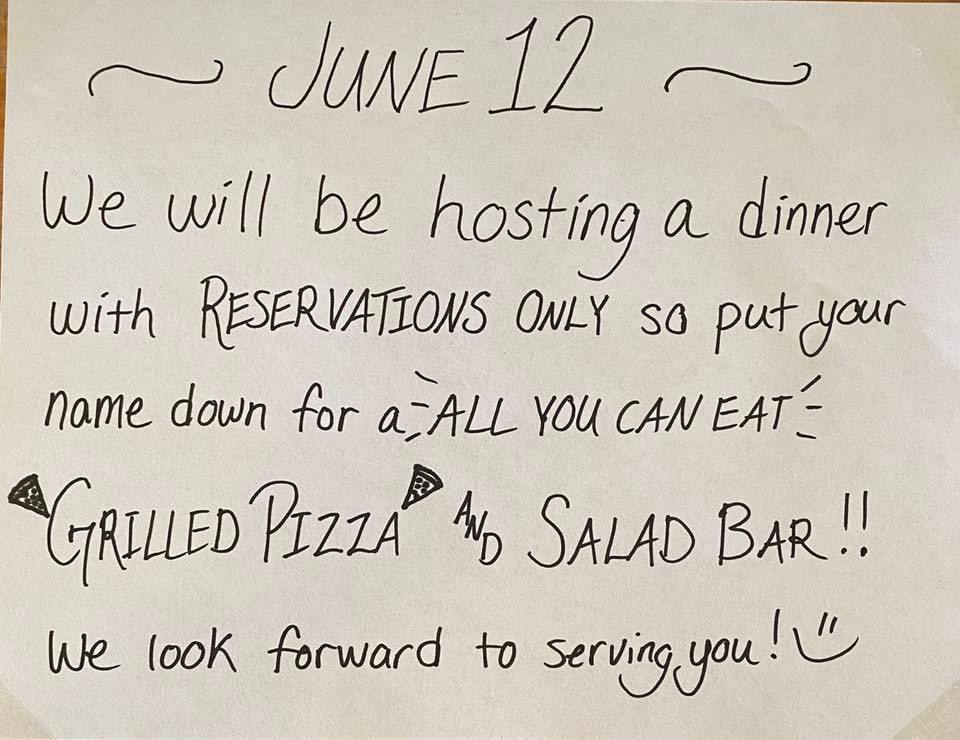 ~ JUNE 12 ~
We will be hosting a dinner
with RESERVATIONS ONLY so put your
name down for a ALL YOU CAN EAT
GRILLED PIZZA AND SALAD BAR!!
We look forward to serving you!